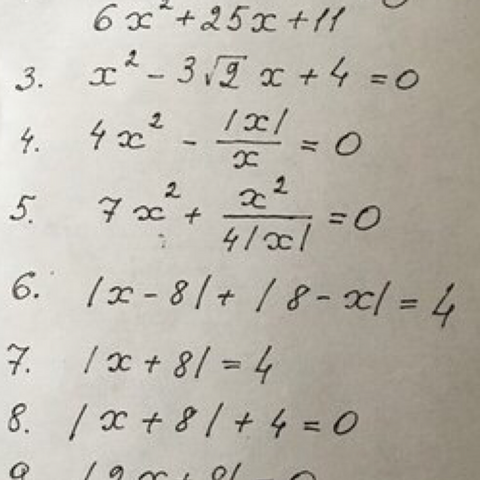 6x² + 25x + 11
3. x² - 3√2 x + 4 = 0
4. 4x² - |x|/x = 0
5. 7x² + x²/4|x| = 0
6. |x - 8| + |8 - x| = 4
7. |x + 8| = 4
8. |x + 8| + 4 = 0